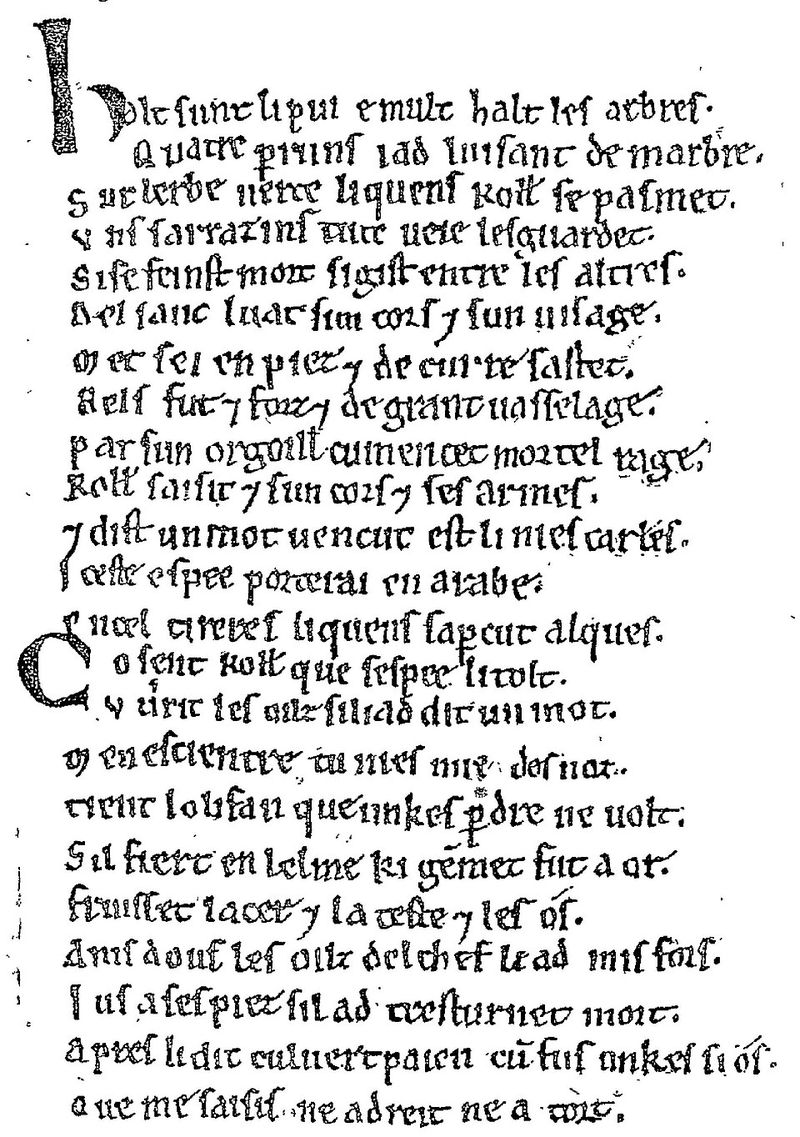 halt sunt li pui e mult halt les arbres.
Quatre perruns iad luisant de marbre.
Sur lerbe uerte li quens Roll se pasmet.
Vns sarrazins tute ueie lesguardet.
Si se feinst mort si gist entre les altres.
Del sanc luat sun cors ⁊ sun uisage.
Met sei en piez ⁊ de curre sastet.
Bels fut ⁊ forz ⁊ de grant uasselage.
Par sun orgoill cumencet mortel rage.
Roll saisit ⁊ sun cors ⁊ ses armes.
⁊ dist un mot uencut est li nies carles.
Iceste espee porterai en arabe.
En cel tireres li quens saperceut alques.
Co sent Roll que sespee li tolt.
Vurit les oilz si li ad dit un mot.
Men escientre tu nies mie des noz.
Tient lolifan que unkes perdre ne uolt.
Sil fiert en lelme ki gemmet fut a or.
Fruisset lacer ⁊ la teste ⁊ les os.
Amsdous les oilz del chef li ad mis fors.
Ius a ses piez sil ad tresturnet mort.
Apres li dit culuert paien cum fus unkes si os.
Que me saisis ne a dreit ne a tort.